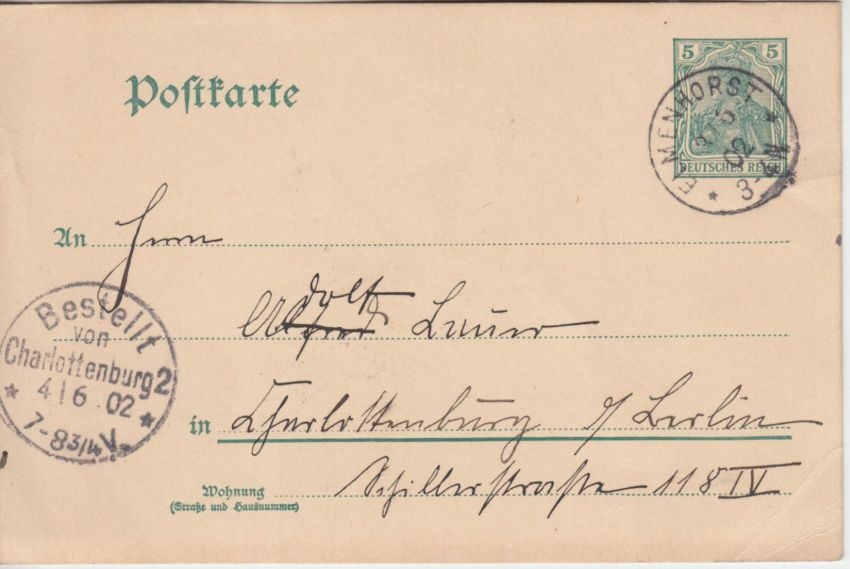 5 5
DEUTSCHES REICH
ELMENHORST
02
3-
Postkarte
An Herrn
dolf
Alfred Lauer
Bestellt
von
Charlottenburg 2
4/6.02
7-8 3/4 V.
in Charlottenburg b/ Berlin
Wohnung Schillerstrasse 118 IV
(Straße und Hausnummer)